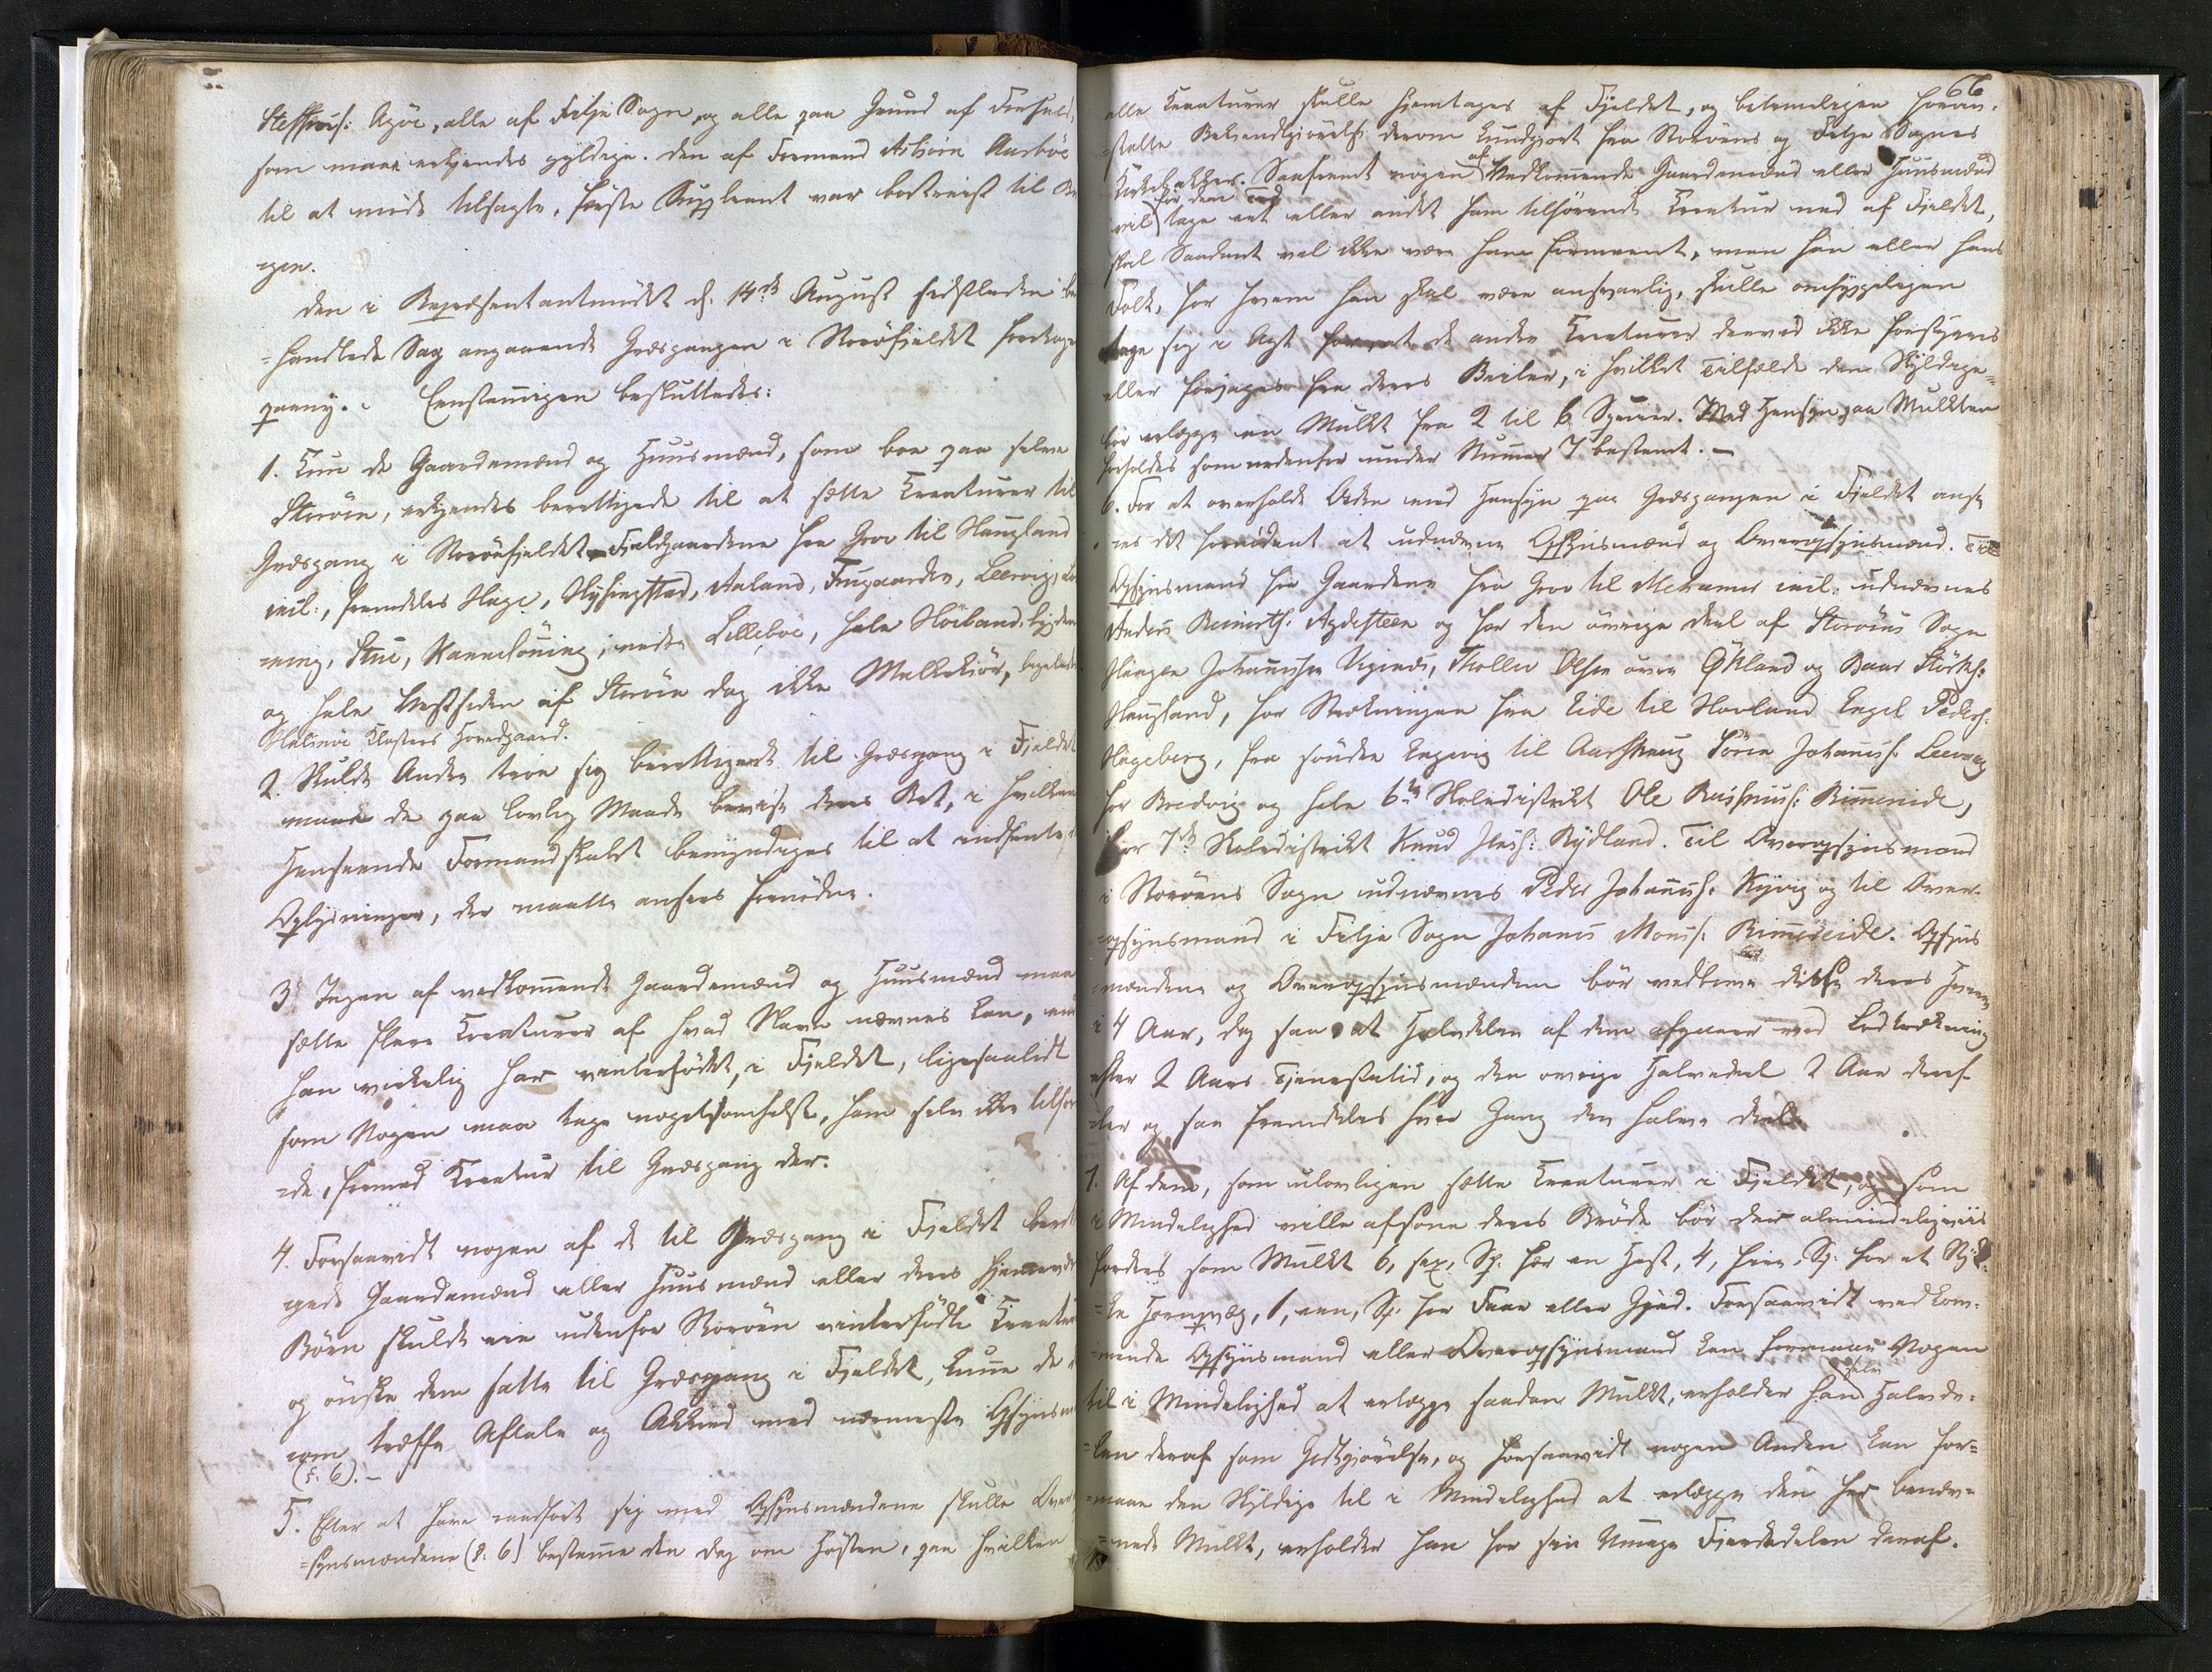 Steffens: Agöe, alle af Fitje Sogn og alle paa Grund af Forfald,
som maae erkjendes gyldige. Den af Formand Asbiörn Aarböe
til at möde tilsagte, förste Suppleant var bortreist til Ber
gen.
Den i Repræsentantmödet d. 14de August sidstleden be
=handlede Sag angaaende Græsgangen i Storöfjeldet foretoges
paany. Eenstemmigen besluttedes:
1. Kun de Gaardemænd og Huusmænd, som boe paa selve
Storöen, erkjendes berettigede til at sætte Kreaturer til
Græsgang i Storöefjeldet Fjeldgaardene fra Grov til Haugland
incl:, fremdeles Hage, Hysingstad, Aaland, Frugaarden, Leervig,
ning, Stue, Nannestöning, nedre Lilleböe, hele Höilandsbygden
og hele Vestsiden af Storöen dog ikke Mellekiör,
Halsnöe Klosters Hovedgaard.
2. Skulde Andre troe sig berettigede til Græsgang i Fjeldet
maae de paa lovlig Maade bevise deres Ret, i hvilken
Henseende Formandskabet bemyndiges til at indhente de
Oplysninger, der maatte ansees fornödne.
3. Ingen af vedkommende Gaardemænd og Huusmænd maa
sætte flere Kreaturer af hvad Navn nævnes kan, end
han virkelig har vinterfödet, i Fjeldet, ligesaalidt
som Nogen maa tage nogetsomhelst, ham selv ikke tilhören
=de, fremmed Kreatur til Græsgang der.
4. Forsaavidt nogen af de til Græsgang i Fjeldet beret
gede Gaardemænd eller Huusmænd eller deres hjemmevær
Börn skulde eie udenfor Storöen vinterfödte Kreaturer
og önske dem satte til Græsgang i Fjeldet, kunne de
om træffe Aftale og Akkord med nærmeste Opsynsm
(§. 6). —
5. Efter at have raadfört sig med Opsynsmændene skulle Overop
=synsmændene (§. 6) bestemme den Dag om Hösten, paa hvilken
66
alle Kreaturer skulle hjemtages af Fjeldet, og betimeligen foran
=stalte Bekjendtgjörelse derom kundgjort fra Storöens og Fitje Sognes
Kirkebakker. Saafremt nogen af Vedkommende Gaardemænd eller Huusmænd
för den Tid
vil tage eet eller andet ham tilhörende Kreatur ned af Fjeldet,
skal Saadant vel ikke være ham formeent, men han eller hans
Folk, for hvem han skal være ansvarlig, skulle omhyggeligen
tage sig i Agt for at de andre Kreaturer derved ikke forstyrres
eller forjages fra deres Beiter, i hvilket Tilfælde den Skyldige
bör erlægge en Mulkt fra 2 til 6 Specier. Med Hensyn paa Mulkten
forholdes som nedenfor under Nummer 7 bestemt. —
6. For at overholde Orden med Hensyn paa Græsgangen i Fjeldet ansee
=es det fornödent at udnævne Opsynsmænd og Overopsynsmænd. Til
Opsynsmænd for Gaardene fra Grov til Mehammer incl. udnævnes
Anders Reinerts: Agdesteen og for den övrige Deel af Storöens Sogn
Haagen Johannesen Vigenes, Tholleiv Olsen övre Økland og Baar Störks:
Haugland, for Strækningen fra Eide til Hovland Engel Peders:
Hageberg, fra söndre Engevig til Aarshaug Sören Johannes: Leervig
for Bredvig og hele 6te Skoledistrikt Ole Rasmus: Rimmereide,
for 7de Skoledistrikt Knud Ness: Rydland. Til Overopsynsmænd
i Storöens Sogn udnævnes Peder Johannes: Kyvig og til Over-
=opsynsmand i Fitje Sogn Johannes Mons: Rimmereide. Opsyns
=mændene og Overopsynsmændene bör vedblive disse deres Hverv
i 4 Aar, dog saa at Halvdelen af dem afgaaer ved Lodtrækning
efter 2 Aars Tjenestetid, og den övrige Halvedeel 2 Aar deref
=ter og saa fremdeles hver Gang den halve Deel.
7. Af dem, som ulovligen sætte Kreaturer i Fjeldet, og som
i Mindelighed ville afsone deres Bröde bör der almindeligviis
fordres som Mulkt 6, sex, Sp: for en Hest, 4, fire, Sp: for et Styk
=ke Hornqvæg, 1, een, Sp: for Faar eller Gjed. Forsaavidt vedkom-
=mende Opsynsmand eller Overopsynsmand kan formaae Nogen
til i Mindelighed at erlægge saadan Mulkt, erholder han selv Halvde-
=len deraf som Godtgjörelse, og forsaavidt nogen Anden kan for=
=maae den Skyldige til i Mindelighed at erlægge den her benæv=
=nede Mulkt, erholder han for sin Umage Fjerdedelen deraf.